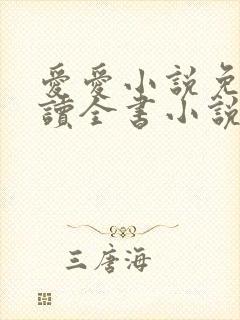 愛愛小説免
讀全書小說
三唐海